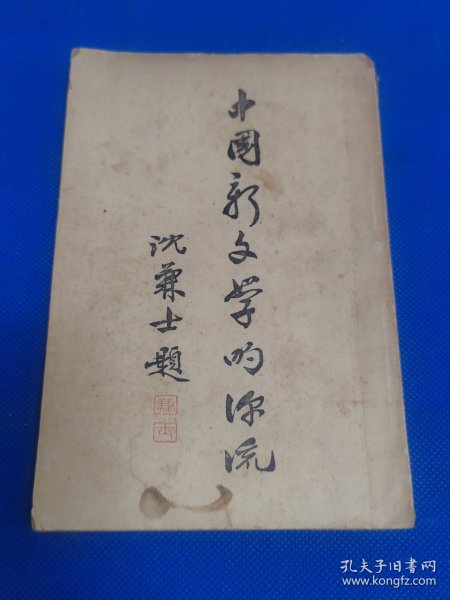 中國新文學的源流
沈兼士題
兼士
孔夫子旧书网
www.kongfz.com